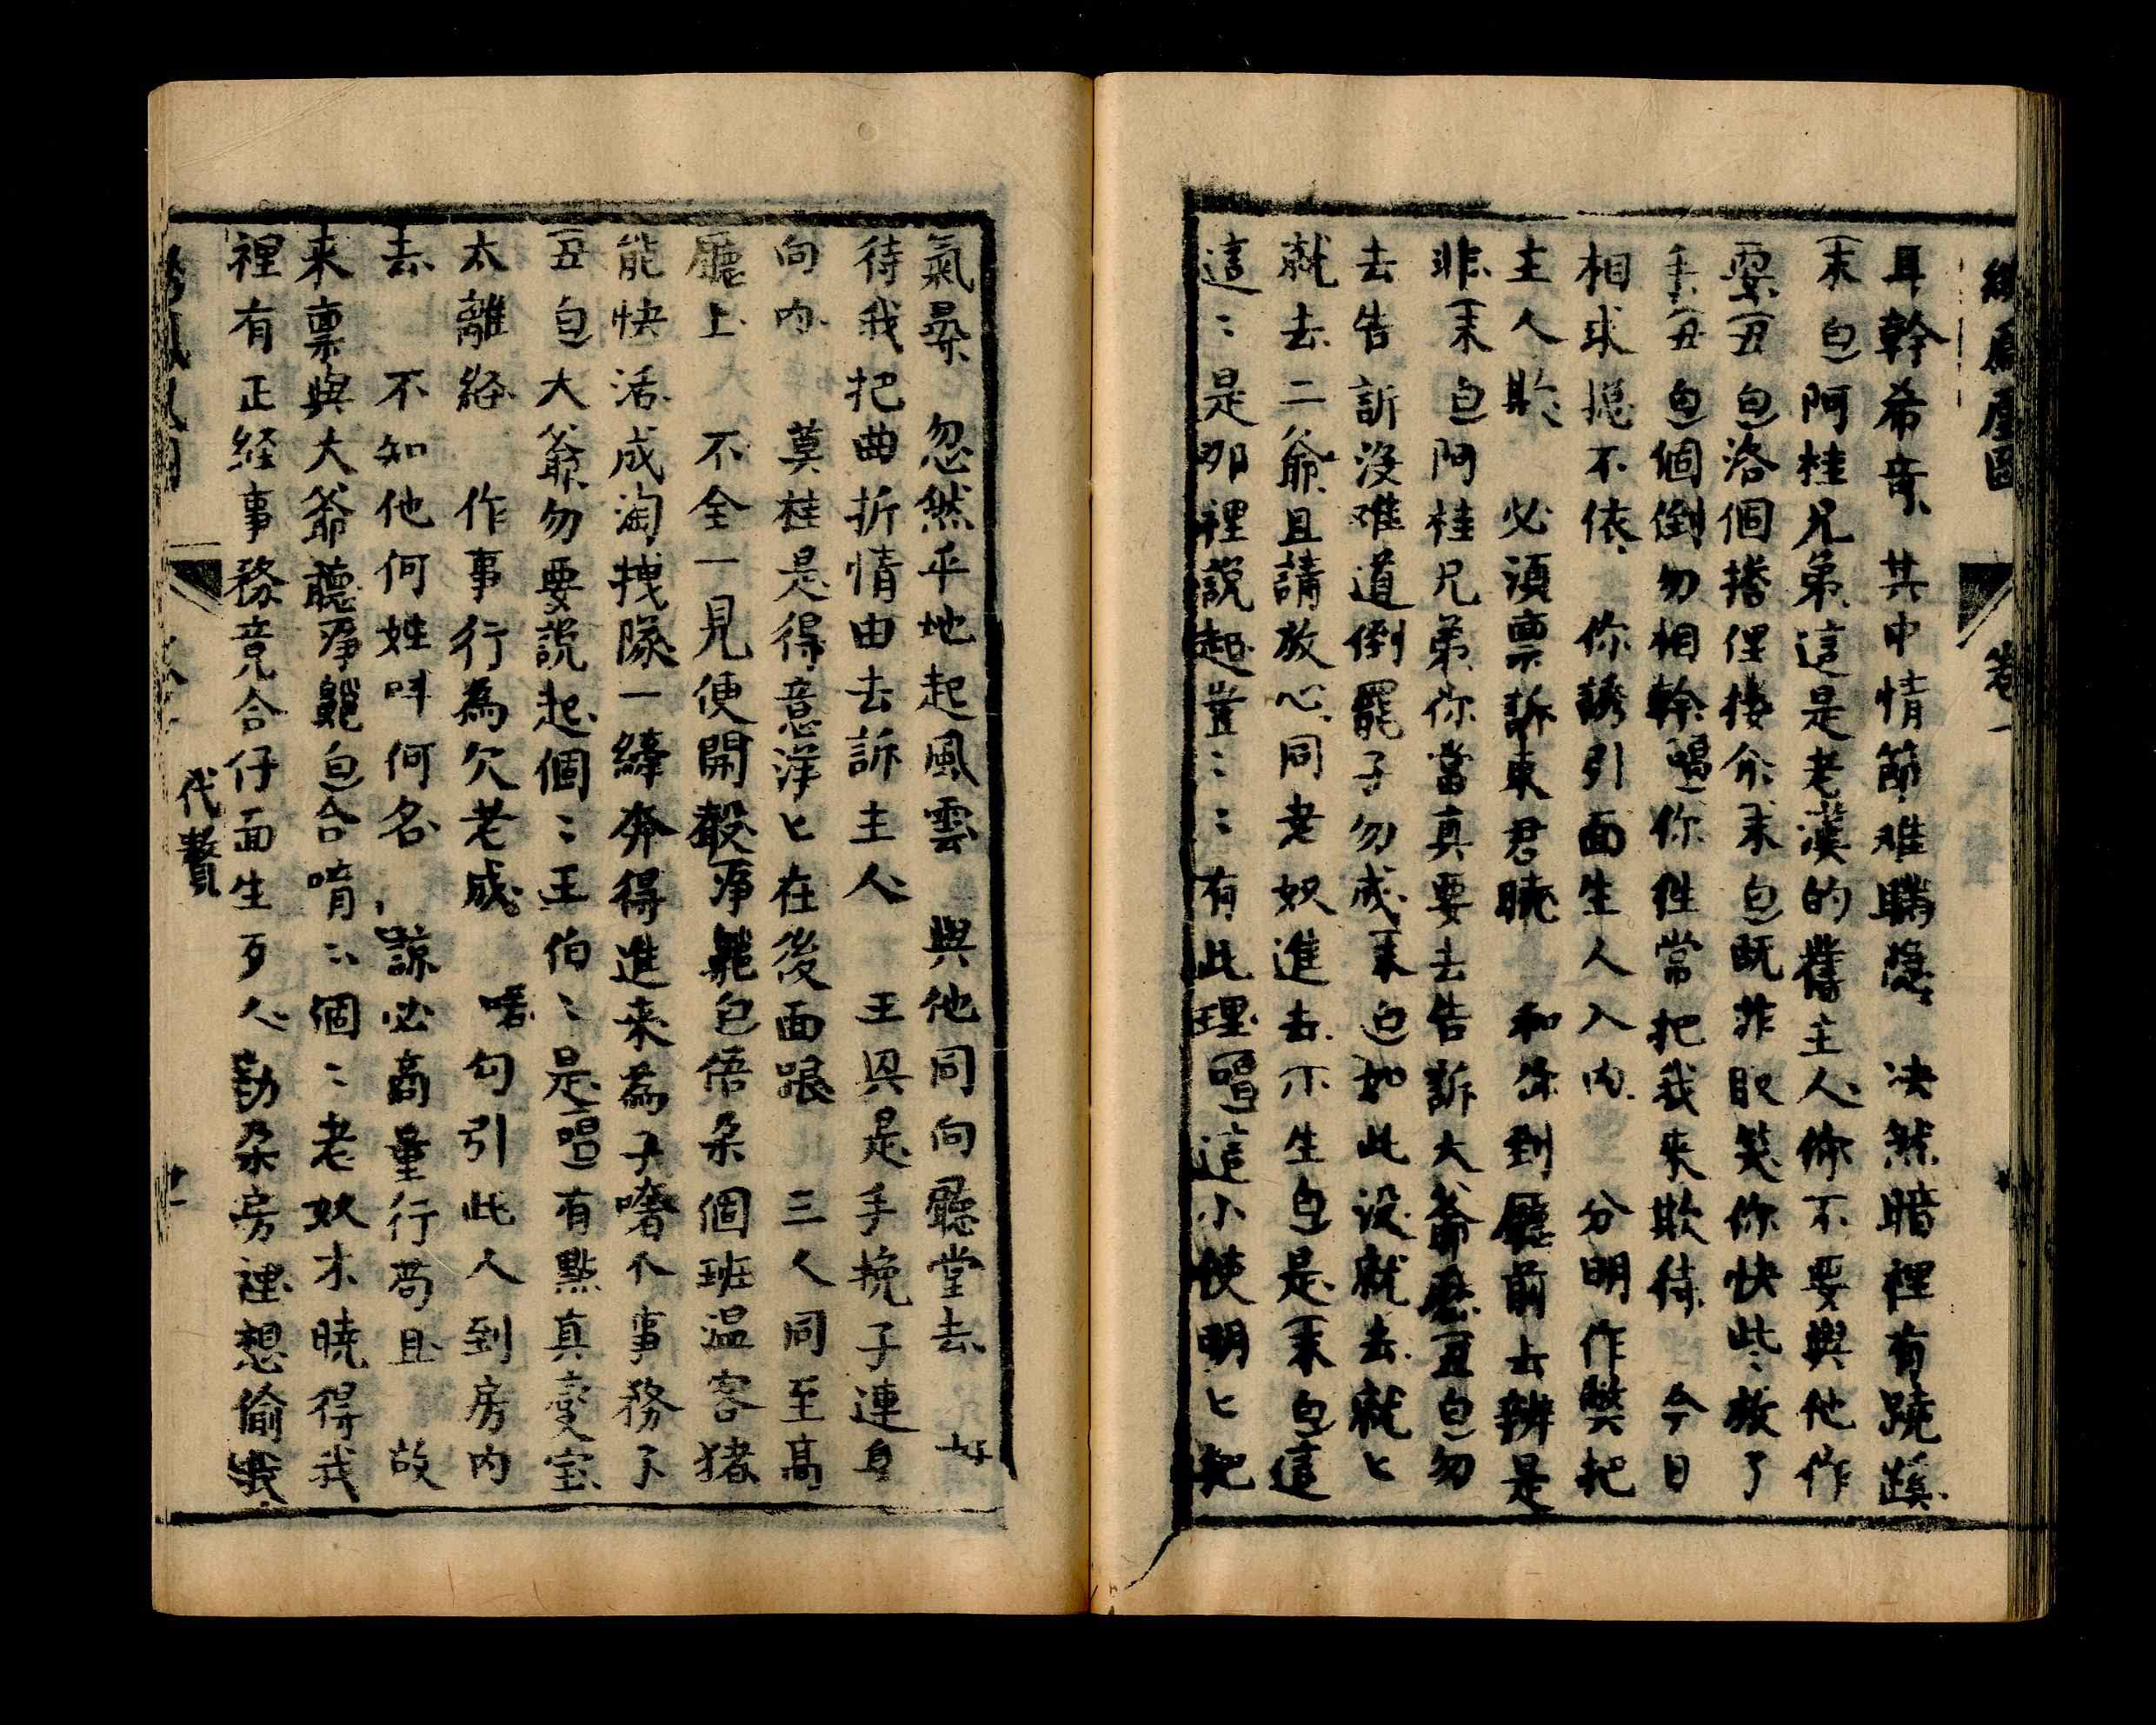 卷一
耳幹希奇 其中情節难瞞隐 决然暗裡有蹺蹊
末白阿桂兄弟這是老漢的舊主人你不要與他作
耍丑白洛個搭俚接介末白既非取笑你快些放了
手丑白個倒勿相幹唱你往常把我來欺待 今日
相求捴不依 你誘引面生人入内 分明作弊把
主人欺 必須禀訴東君曉 和你到廳前去辨是
非末白阿桂兄弟你當真要去告訴大爺麽丑白勿
去告訴没难道倒罷子勿成末白如此没就去就匕
就去二爺且請放心同老奴進去小生白是末白這
這〻是那裡說起豈〻〻有此理唱這小使明匕把
氣桑 忽然平地起風雲 與他同向廳堂去 好
待我把曲折情由去訴主人 王興是手挽子連身
向内 莫桂是得意洋匕在後面跟 三人同至高
廳上 不全一見便開殼淨白倍朵個班温客猪
能快活成淘拽隊一縴奔得進来為子嗜个事務了
丑白大爺勿要說起個〻王伯〻是唱有點真變宝
太離経 作事行為欠老成 嗜勾引此人到房内
去 不知他何姓叫何名 諒必商量行苟且 故
来禀與大爺聽淨白合唷〻個〻老奴才曉得我
裡有正経事務竟合仔面生歹人勤朵房裡想偷我
代贅